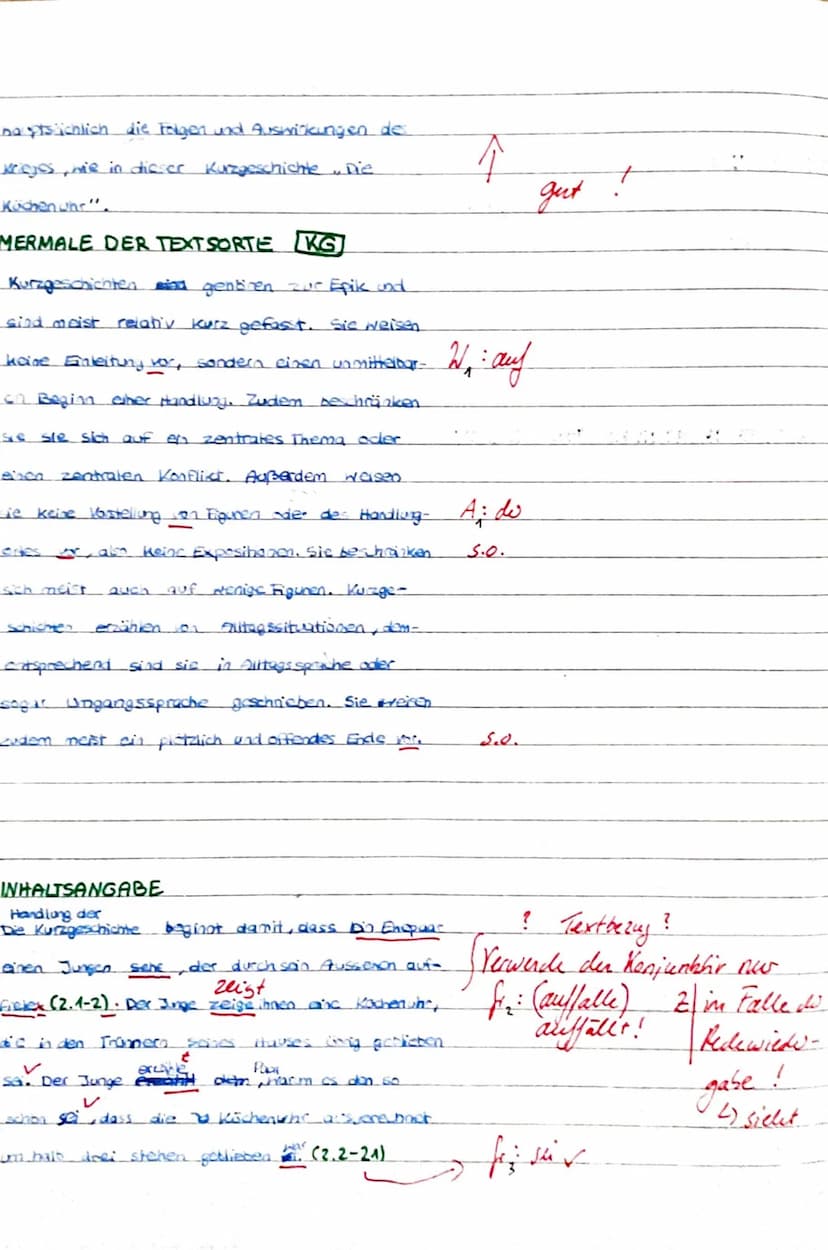 hauptsächlich die Folgen und Auswirkungen de
Krieges, wie in dieser Kurzgeschichte „Die
Küchenuhr".
gut !
MERMALE DER TEXTSORTE KG
Kurzgeschichten gehören zur Epik und
sind meist relativ kurz gefasst. Sie weisen
keine Einleitung vor, sondern einen unmittelbar-
W1: auf
en Beginn einer Handlung. Zudem beschränken
sie sie sich auf ein zentrales Thema oder
einen zentralen Konflikt. Außerdem weisen
ie keine Vorstellung von Figuren oder des Handlung-
A1: der
ortes vor, also keine Expositionen. Sie beschränken
s.o.
sich meist auch auf wenige Figuren. Kurzge-
schichten erzählen von Alltagssituationen, dem-
entsprechend sind sie in Alltagssprache oder
sogar Umgangssprache geschrieben. Sie weisen
zudem meist ein plötzlich und offendes Ende vor.
s.o.
INHALTSANGABE
Handlung der
Die Kurzgeschichte beginnt damit, dass Ein Ehepaar
? Textbezug ?
einen Jungen sehe, der durch sein Aussehen auf-
Verwende den Konjunktiv nur
zeigt
fiele (Z.1-2). Der Junge zeige ihnen eine Küchenuhr,
fr2: (auffalle) Z im Falle der
auffällt! Redewieder-
die in den Trümmern seines Hauses übrig geblieben
gabe !
sei. Der Junge erzählt, warum es den so
↳ sieht
schön sei, dass die Küchenuhr ausgerechnet
um halb drei stehen geblieben (2.2-21)
fr3: sei ✓